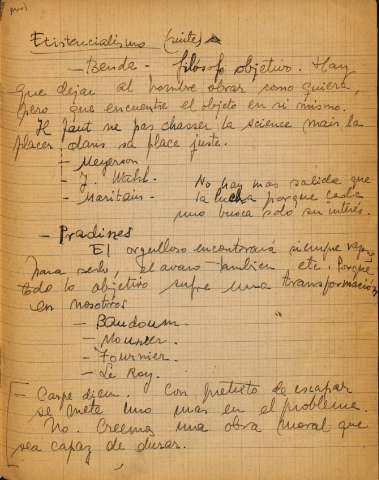 Existencialismo
— Benda - filósofo objetivo. Hay
que dejar al hombre obrar como quiera,
pero que encuentre el objeto en si mismo.
Il faut ne pas chasser la science mais la
placer dans sa place juste.
— Meyerson
— J. Wahl. No hay mas salida que
— Maritain. la lucha porque cada
uno busca solo su interés.
— Pradines
El orgulloso encontrará siempre
para serlo, el avaro tambien etc. Porque
todo lo objetivo sufre una transformación
en nosotros
— Baudouin.
— Mounier.
— Fournier.
— Le Roy.
— Carpe diem. Con pretexto de escapar
se mete uno mas en el problema.
No. Creemos una obra moral que
sea capaz de durar.